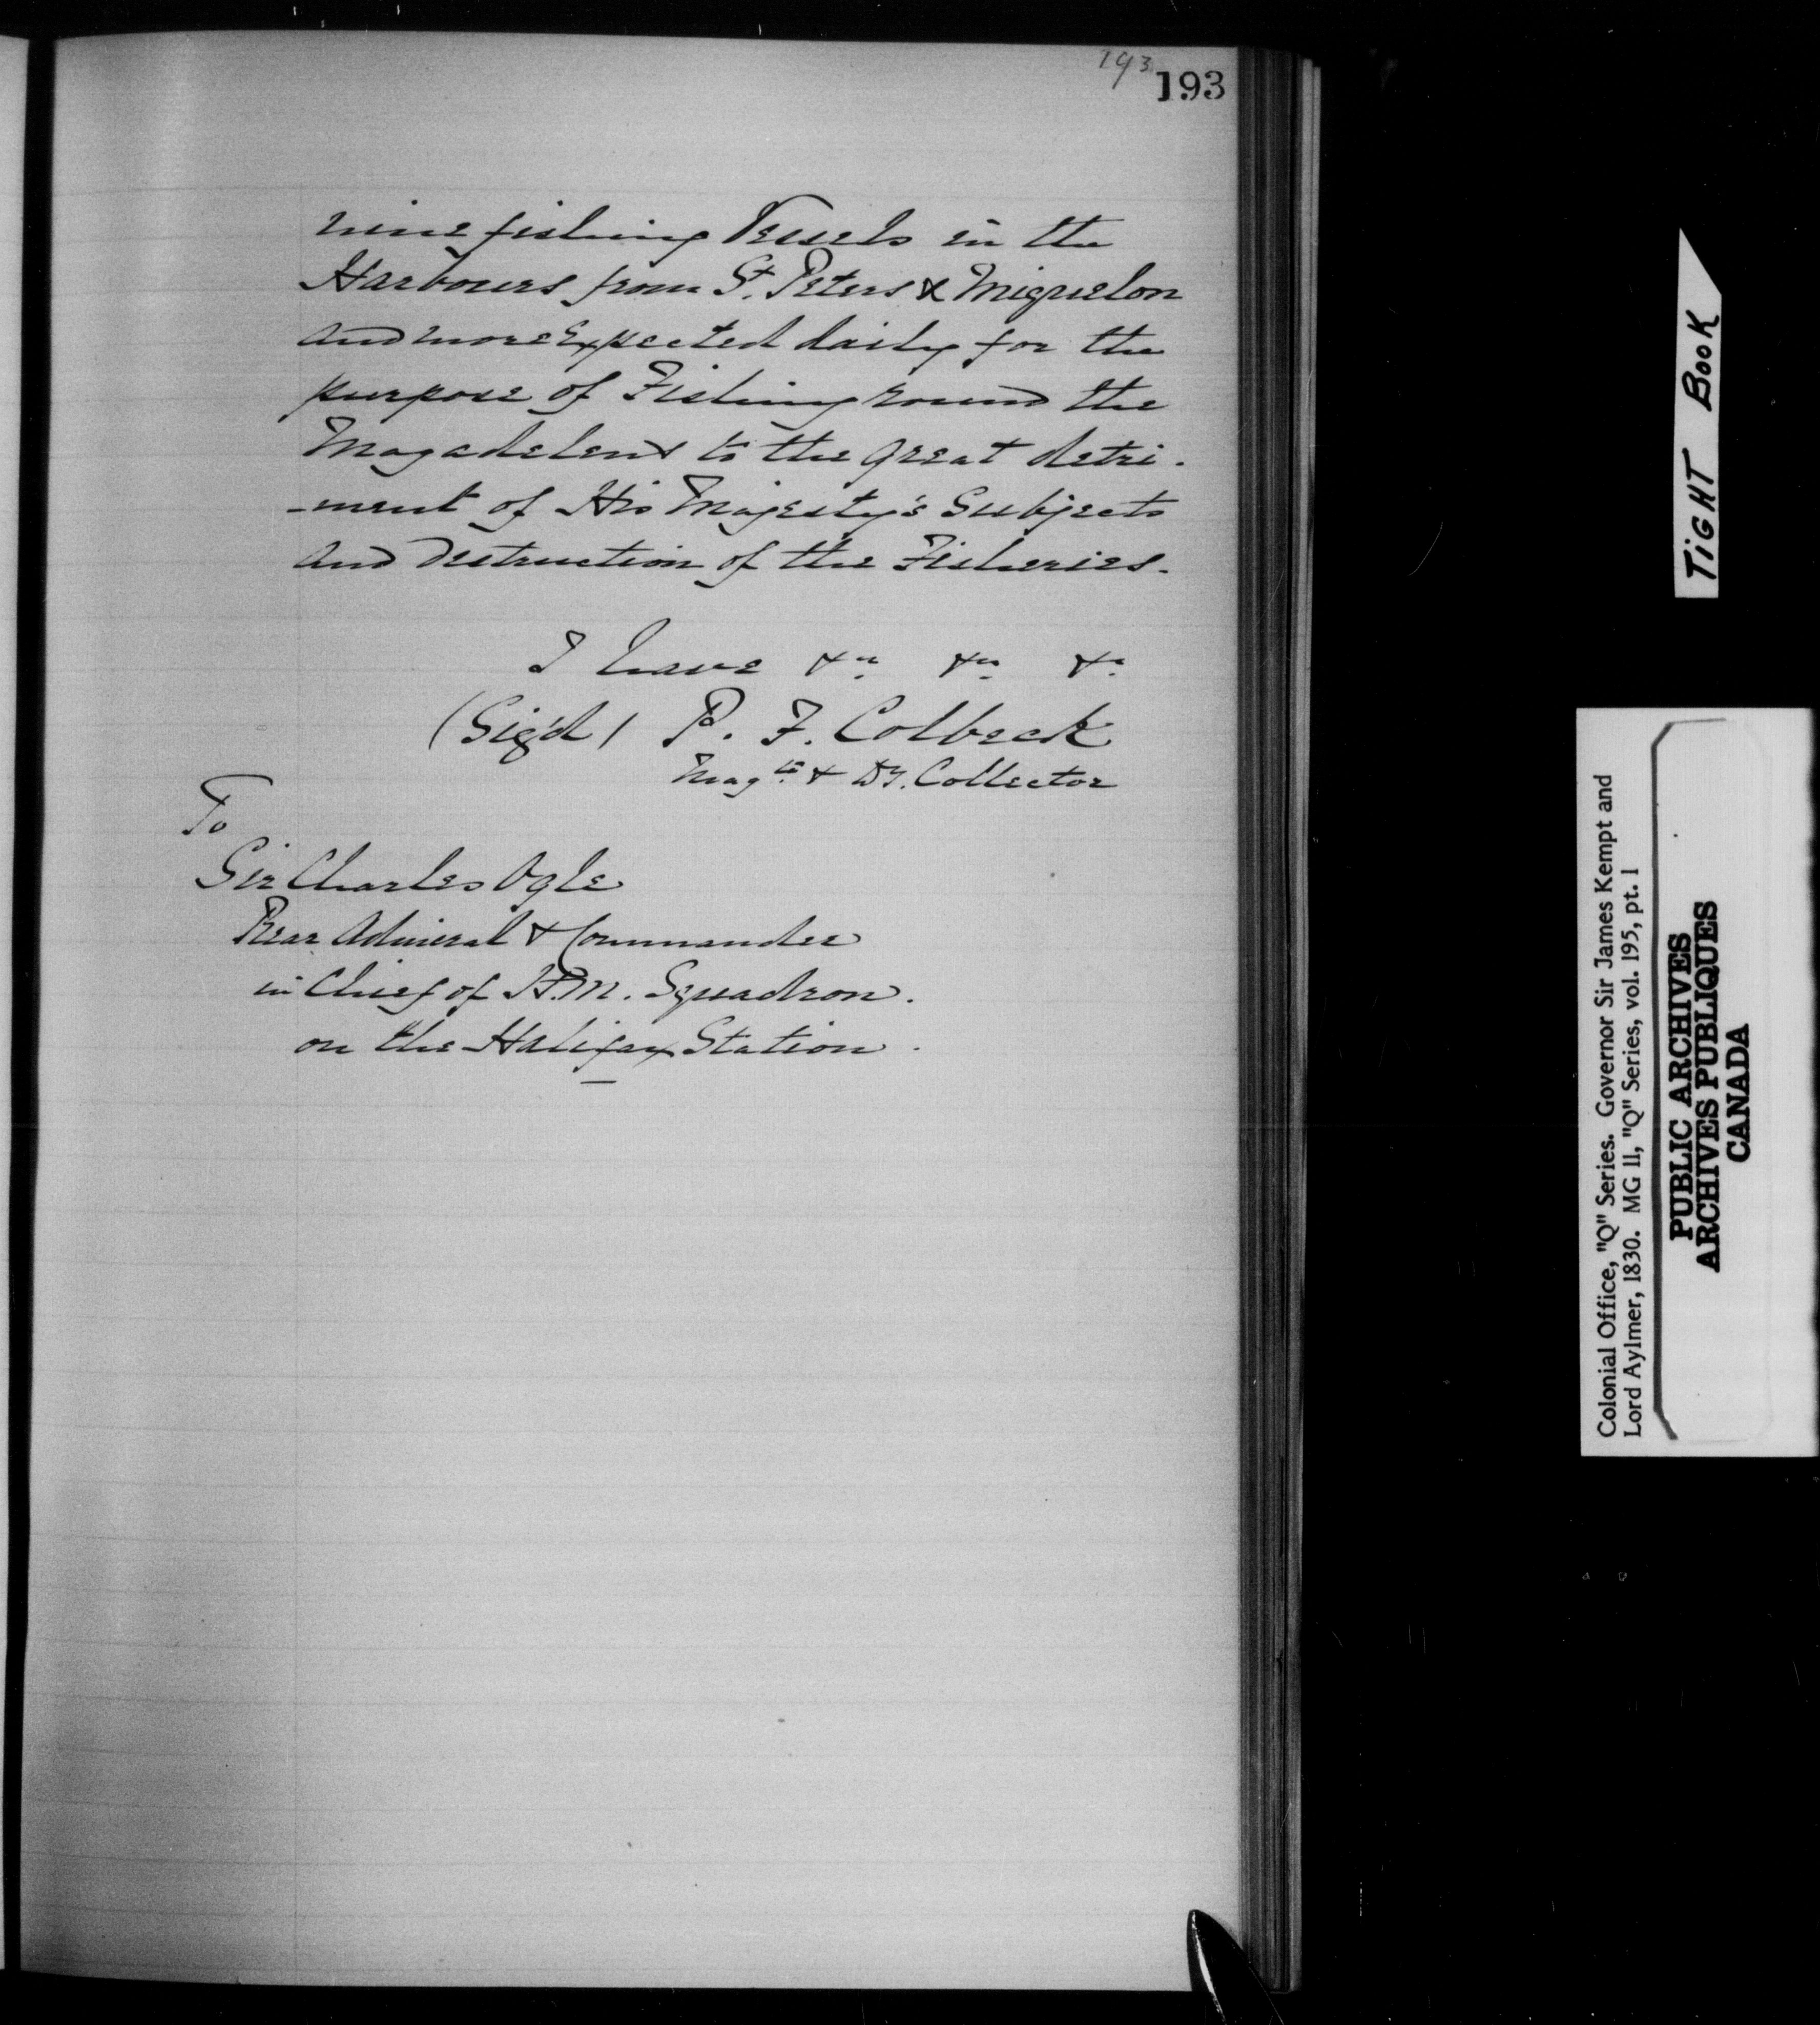 193
193
nine fishing Vessels in the
Harbours from St. Peters & Miquelon
and more Expected daily for the
purpose of Fishing round the
Magadelens to the great detri-
-ment of His Majesty's Subjects
and destruction of the Fisheries.
I have &c. &c. &c.
(Sig'd) P. F. Colbeck
Magte. & Dy. Collector
To
Sir Charles Ogle
Rear Admiral & Commander
in Chief of H.M. Squadron.
on the Halifax Station.
TIGHT BOOK
Colonial Office, "Q" Series. Governor Sir James Kempt and
Lord Aylmer, 1830. MG 11, "Q" Series, vol. 195, pt. 1
PUBLIC ARCHIVES
ARCHIVES PUBLIQUES
CANADA